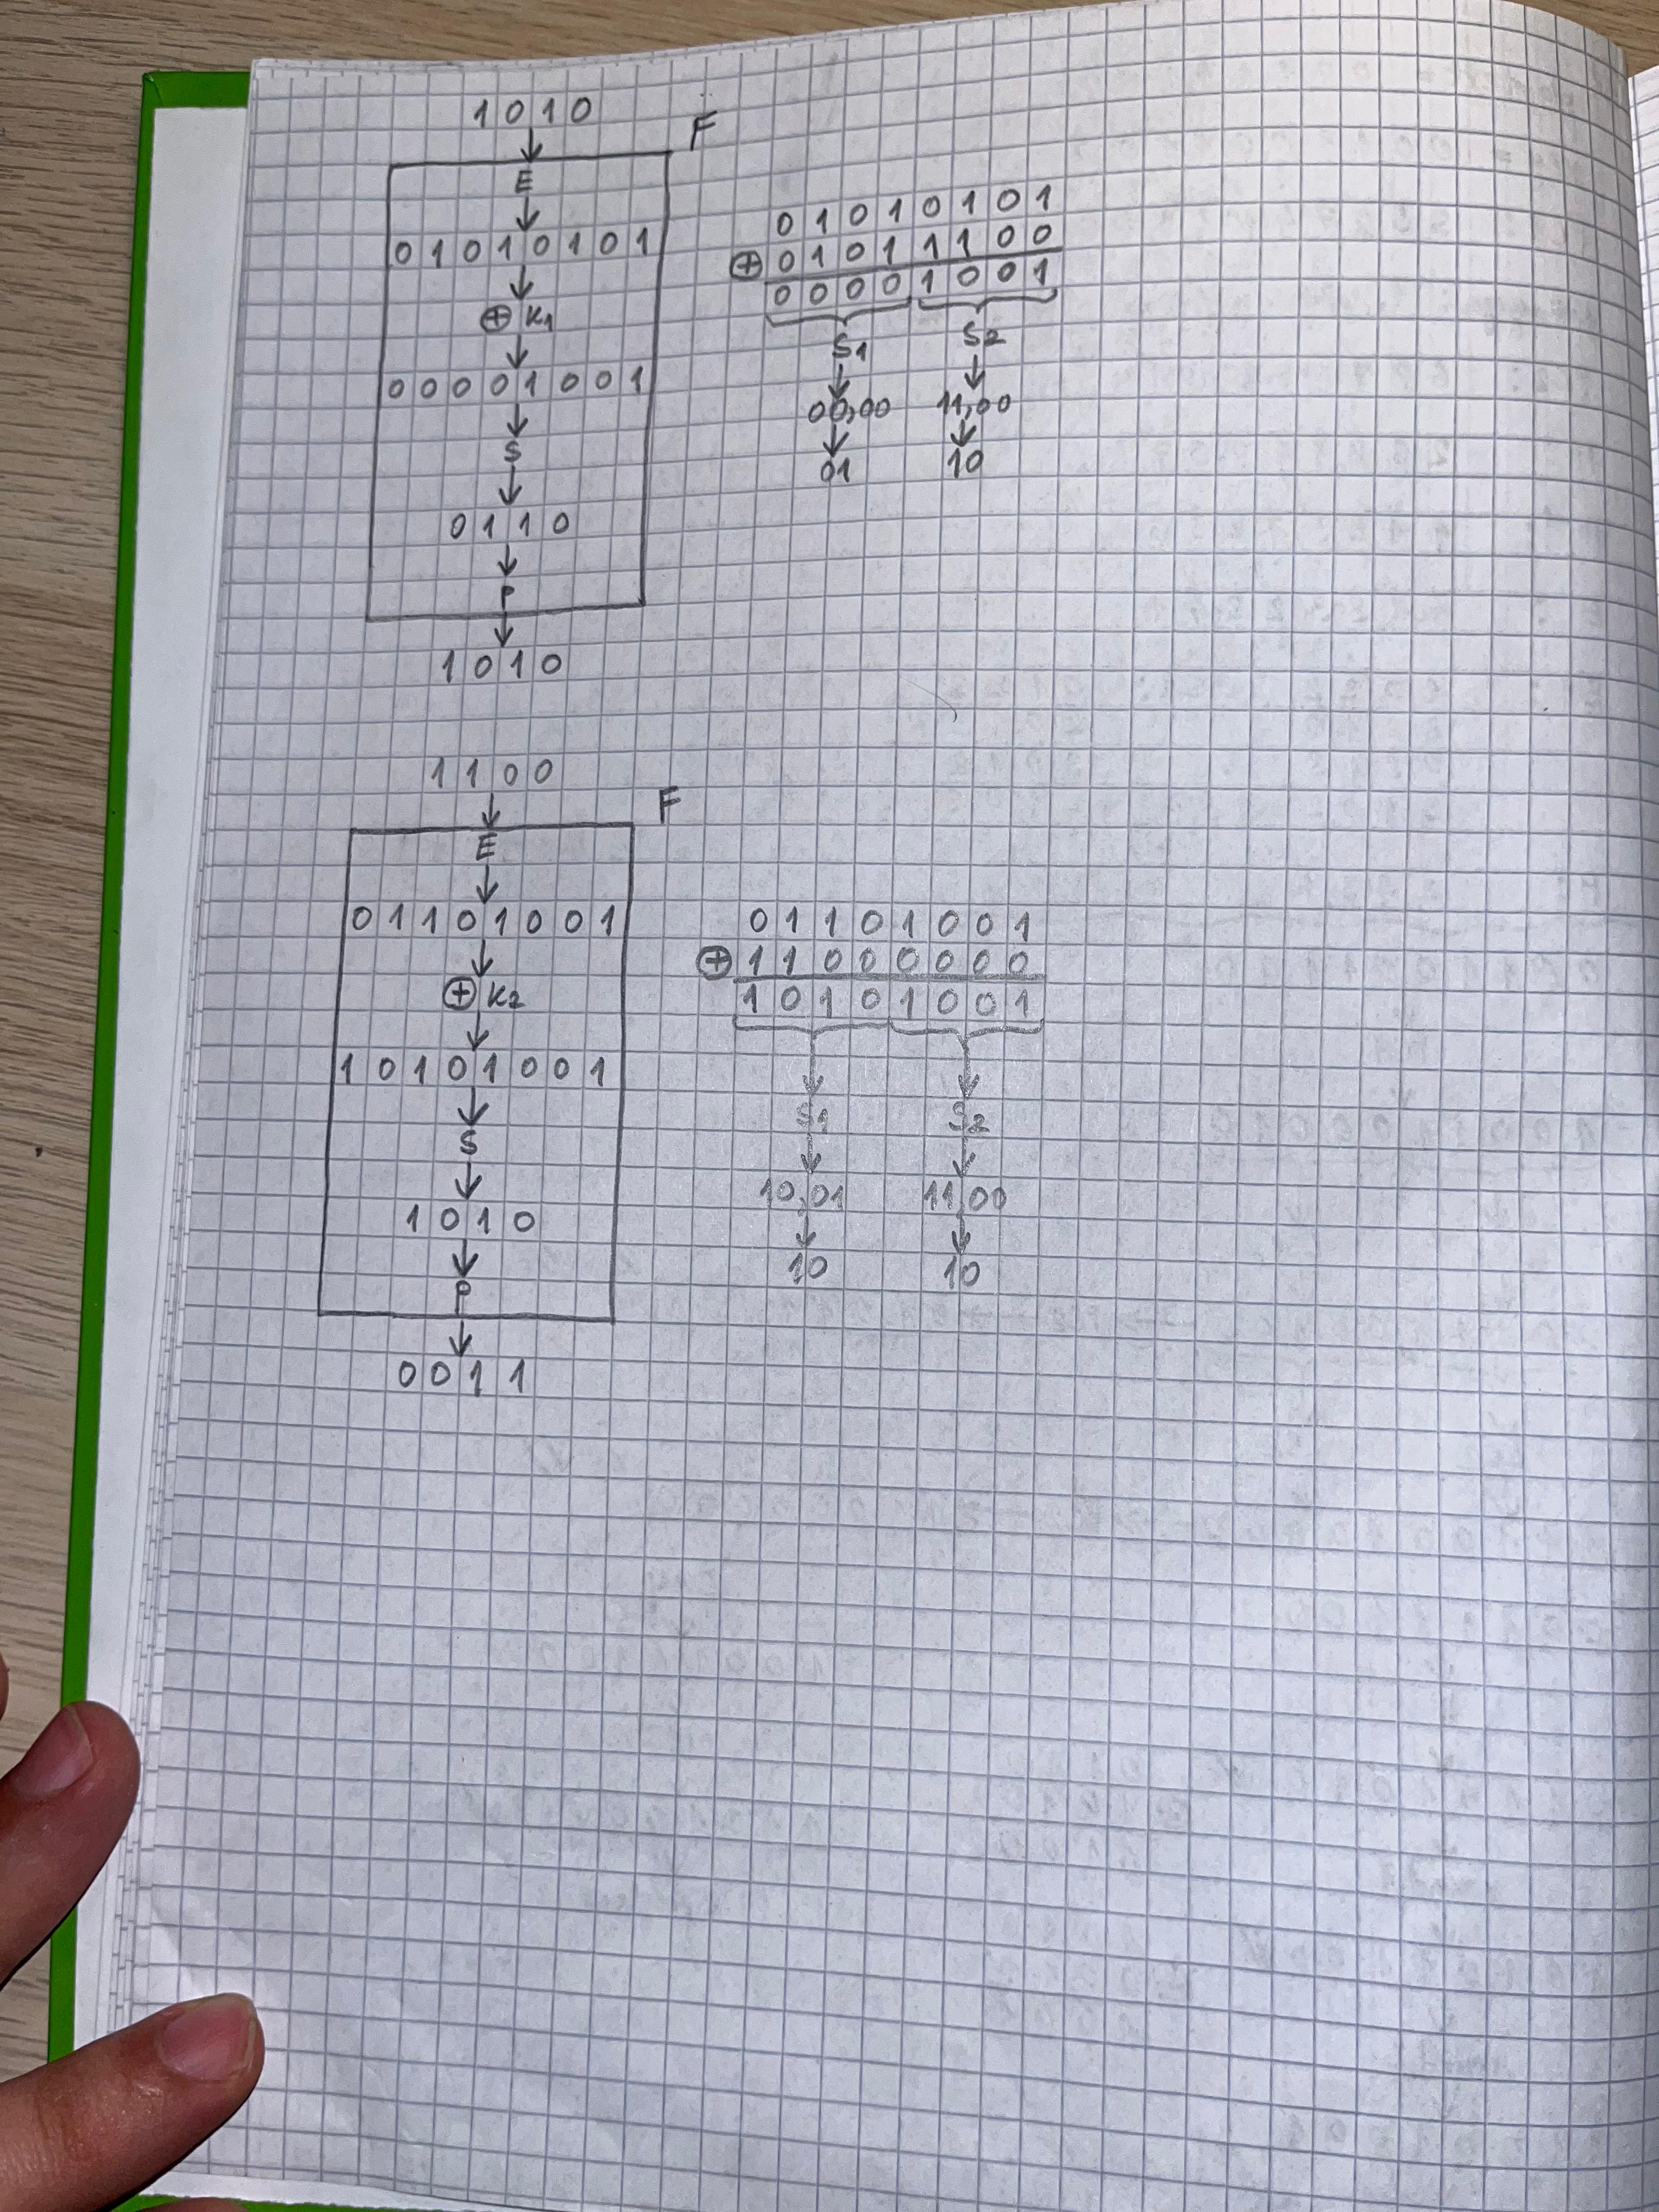 1 0 1 0
F
E
0 1 0 1 0 1 0 1
⊕ K1
0 0 0 0 1 0 0 1
S
0 1 1 0
P
1 0 1 0
0 1 0 1 0 1 0 1
⊕ 0 1 0 1 1 1 0 0
0 0 0 0 1 0 0 1
S1 S2
00,00 11,00
01 10
1 1 0 0
F
E
0 1 1 0 1 0 0 1
⊕ K2
1 0 1 0 1 0 0 1
S
1 0 1 0
P
0 0 1 1
0 1 1 0 1 0 0 1
⊕ 1 1 0 0 0 0 0 0
1 0 1 0 1 0 0 1
S1 S2
10,01 11,00
10 10